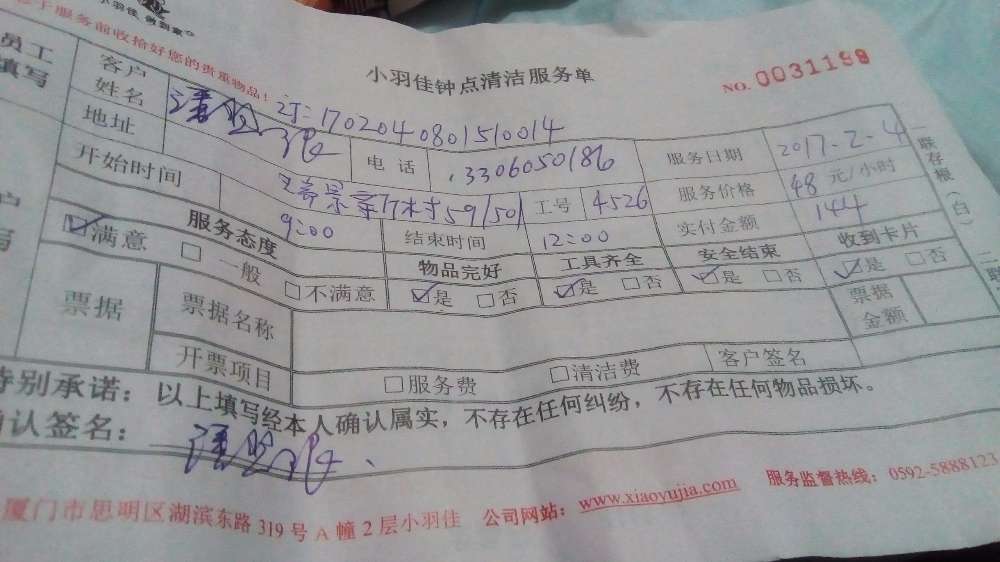 小羽佳 做到家
于服务前收拾好您的贵重物品！
小羽佳钟点清洁服务单
NO. 0031199
员工
填写
客户
姓名
订：1702040801510014
地址
电话
3306050186
服务日期
2017.2-4
开始时间
9:00
59/501
工号
4526
服务价格
48 元/小时
结束时间
12:00
实付金额
144
服务态度
物品完好
工具齐全
安全结束
收到卡片
满意
一般
不满意
是 否
是 否
是 否
是 否
票据
票据名称
票据
金额
开票项目
服务费
清洁费
客户签名
特别承诺：以上填写经本人确认属实，不存在任何纠纷，不存在任何物品损坏。
确认签名：
一联存根（白）
二联
厦门市思明区湖滨东路 319 号 A 幢 2 层小羽佳 公司网站：www.xiaoyujia.com 服务监督热线：0592-5888123